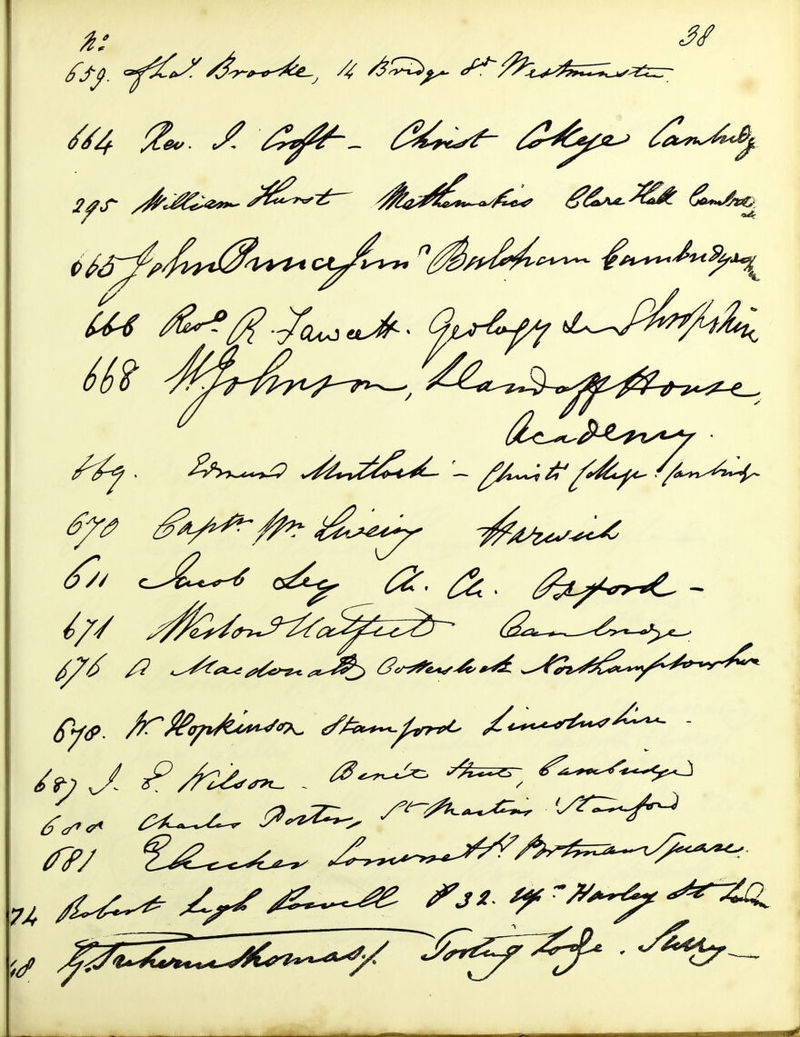 No. 38
659. Chas. Brooke, 14 Bridge St. Westminster
664 Rev. J. Croft - Christ College Cambridge
295 William Hurst Mathematics Clare Hall Cambridge
665 John Prince Junr Balsham Cambridgeshire
666 Revd. R. Fawcett. Geology Shropshire
668 W. Johnson, Llandaff House,
Academy.
669. Edmund Mortlock - Christ's College Cambridge
670 Captn. Wm. Liveing Harwich
611 Jacob Ley Ch. Ch. Oxford -
671 Weston Hatfield Cambridge
676 A Macdonald Cotterstock Northamptonshire
678. W. Hopkinson Stamford Lincolnshire.
687 J. E. Wilson. Benét Street, Cambridge
688 Charles Porter, St Martins Stamford
681 Somerset St. Portman Square.
74 Robert Leigh 32. Upr. Harley St London
68 G. Treherne Thomas. Tooting Lodge. Surry -